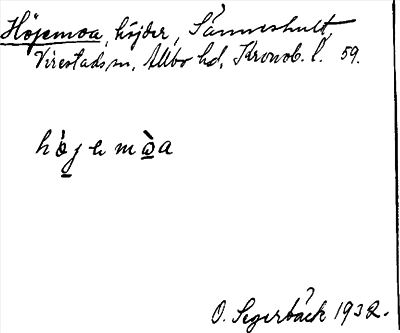 Höjemoa, höjder, Sånneshult,
Virestads sn, Allbo hd, Kronob. l. 59.
höjemòa
O. Segerbäck 1932.